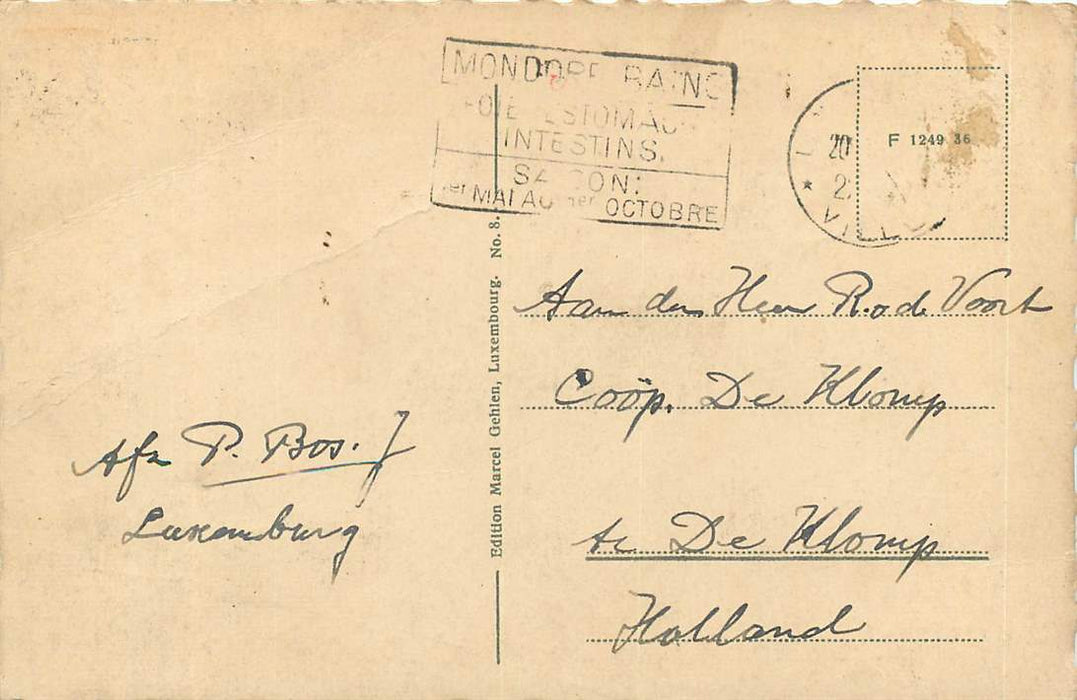 MONDORF BAINS
FOIE ESTOMAC
INTESTINS.
SAISON:
1er MAI AU 1er OCTOBRE
20
VILLE
F 1249 36
Edition Marcel Gehlen, Luxembourg. No. 8.
Aan den Heer R. v d Voort
Coöp. De Klomp
te De Klomp
Holland
Afz P. Bos. J
Luxemburg